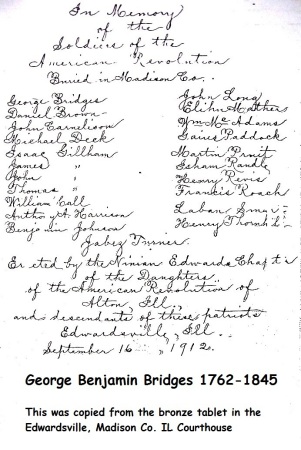 In Memory
of the
Soldiers of the
American Revolution
Buried in Madison Co.
George Bridges
Daniel Brown
John Carnelison
Michael Deck
Isaac Gillham
James "
John "
Thomas "
William Call
Anthony A. Harrison
Benjamin Johnson
John Long
Elihu Mathers
Wm Mc Adams
Gaius Paddock
Martin Pruit
Isham Randle
Henry Revis
Francis Roach
Laban
Henry
Jabez Turner.
Erected by the Ninian Edwards Chapter
of the Daughters
of the American Revolution of
Alton, Ill,
and descendants of these patriots
Edwardsville, Ill.
September 16 1912.
George Benjamin Bridges 1762-1845
This was copied from the bronze tablet in the
Edwardsville, Madison Co. IL Courthouse